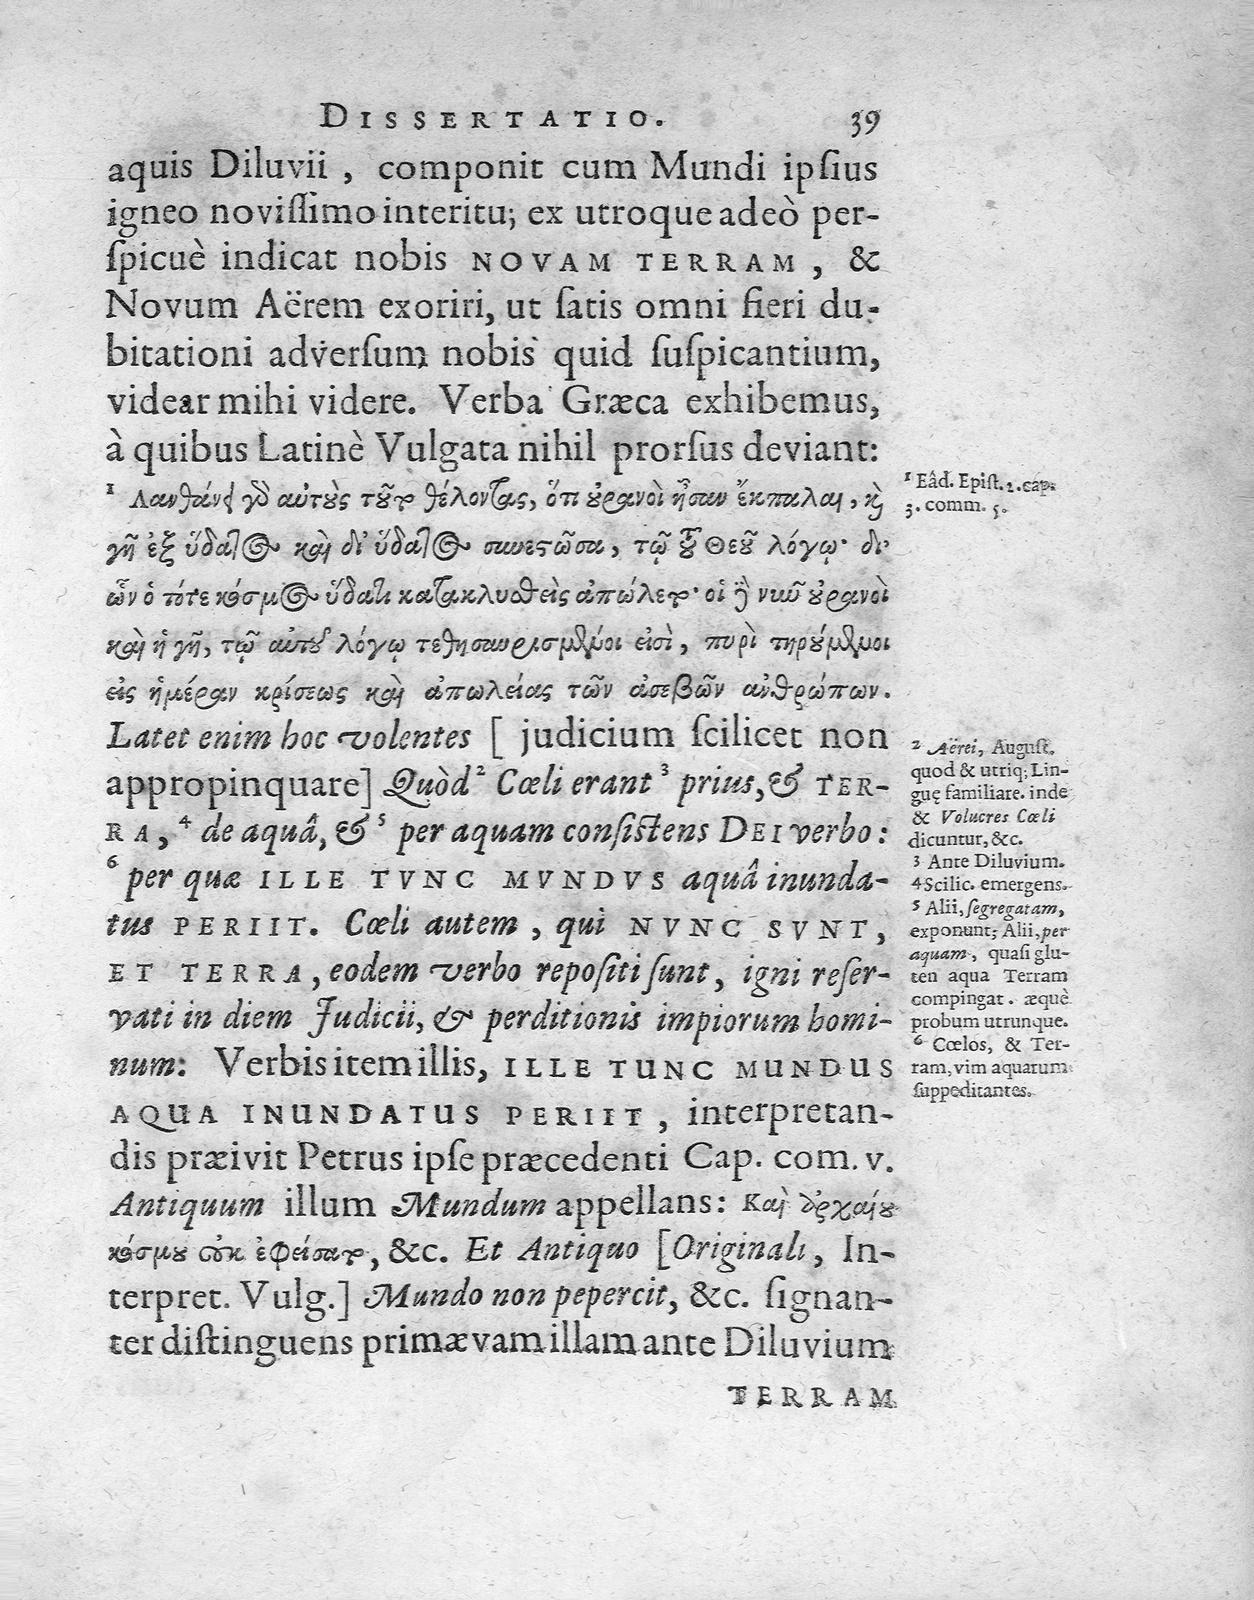 DISSERTATIO. 39
aquis Diluvii , componit cum Mundi ipſius
igneo noviſſimo interitu; ex utroque adeò per-
ſpicuè indicat nobis NOVAM TERRAM, &
Novum Aërem exoriri, ut ſatis omni fieri du-
bitationi adverſum nobis quid ſuſpicantium,
videar mihi videre. Verba Græca exhibemus,
à quibus Latinè Vulgata nihil prorſus deviant:
¹ Λανθάνει γὸ αὐτοὺς τοῦτο θέλοντας, ὅτι οὐρανοὶ ἦσαν ἔκπαλαι, καὶ
γῆ ἐξ ὕδατος καὶ δι' ὕδατος συνεστῶσα, τῷ τοῦ Θεοῦ λόγῳ· δι'
ὧν ὁ τότε κόσμος ὕδατι κατακλυσθεὶς ἀπώλετο· οἱ δὲ νῦν οὐρανοὶ
καὶ ἡ γῆ, τῷ αὐτοῦ λόγῳ τεθησαυρισμένοι εἰσὶ, πυρὶ τηρούμενοι
εἰς ἡμέραν κρίσεως καὶ ἀπωλείας τῶν ἀσεβῶν ἀνθρώπων.
Latet enim hoc volentes [ judicium ſcilicet non
appropinquare] Quòd ² Cœli erant ³ prius, & TER-
RA, ⁴ de aquâ, & ⁵ per aquam conſiſtens DEI verbo:
⁶ per quæ ILLE TVNC MVNDVS aquâ inunda-
tus PERIIT. Cœli autem, qui NVNC SVNT,
ET TERRA, eodem verbo repoſiti ſunt, igni reſer-
vati in diem Judicii, & perditionis impiorum homi-
num: Verbis item illis, ILLE TUNC MUNDUS
AQUA INUNDATUS PERIIT, interpretan-
dis præivit Petrus ipſe præcedenti Cap. com. v.
Antiquum illum Mundum appellans: Καὶ ἀρχαίου
κόσμου οὐκ ἐφείσατο, &c. Et Antiquo [Originali, In-
terpret. Vulg.] Mundo non pepercit, &c. ſignan-
ter diſtinguens primævam illam ante Diluvium
TERRAM
¹ Eâd. Epiſt. 2. cap.
3. comm. 5.
² Aërei, Auguſt.
quod & utriq; Lin-
guę familiare. inde
& Volucres Cœli
dicuntur, &c.
³ Ante Diluvium.
⁴ Scilic. emergens.
⁵ Alii, ſegregatam,
exponunt; Alii, per
aquam, quaſi glu-
ten aqua Terram
compingat. æquè
probum utrunque.
⁶ Cœlos, & Ter-
ram, vim aquarum
ſuppeditantes.